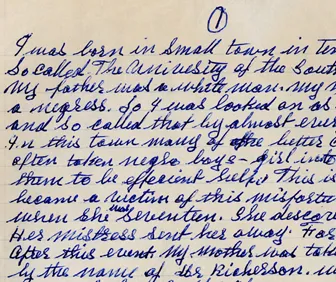 1
I was born in small town in
So called. The Univesity of the Sout
My father was a white man. My
a negress. So I was looked on as
and so called that by almost ever
In this town many of the better
often taken negro boys - girl into
them to be effecient help. This is
became a victim of this misfortu
when she was seventeen. She descov
Her mistress sent her away. For
After this event my mother was tak
by the name of Richerson.